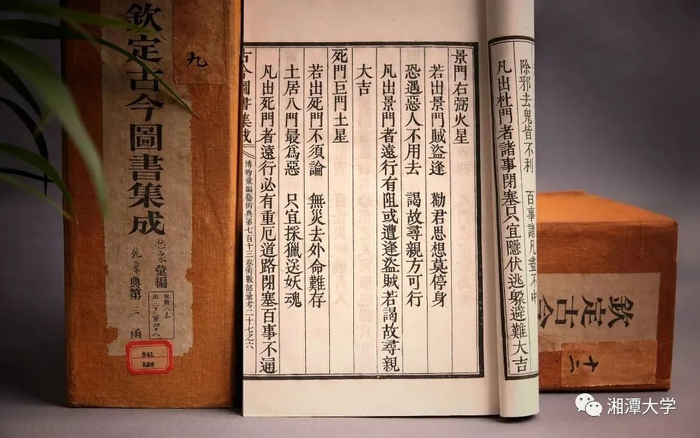 九
欽定古今圖書集成
彙編
典第 函
041
526
除邪去鬼皆不利 百事諸凡盡不中
凡出杜門者諸事閉塞只宜隱伏逃躲避難大吉
景門右弼火星
若出景門賊盜逢 勸君思想莫停身
恐遇惡人不用去 謁故尋親方可行
凡出景門者遠行有阻或遭逢盜賊若謁故尋親
大吉
死門巨門土星
若出死門不須論 無災去外命難存
土居八門最爲惡 只宜採獵送妖魂
凡出死門者遠行必有重厄道路閉塞百事不通
古今圖書集成 博物彙編藝術典第七百十三卷術數部彙考二十七之六
欽定古今
十二
湘潭大学